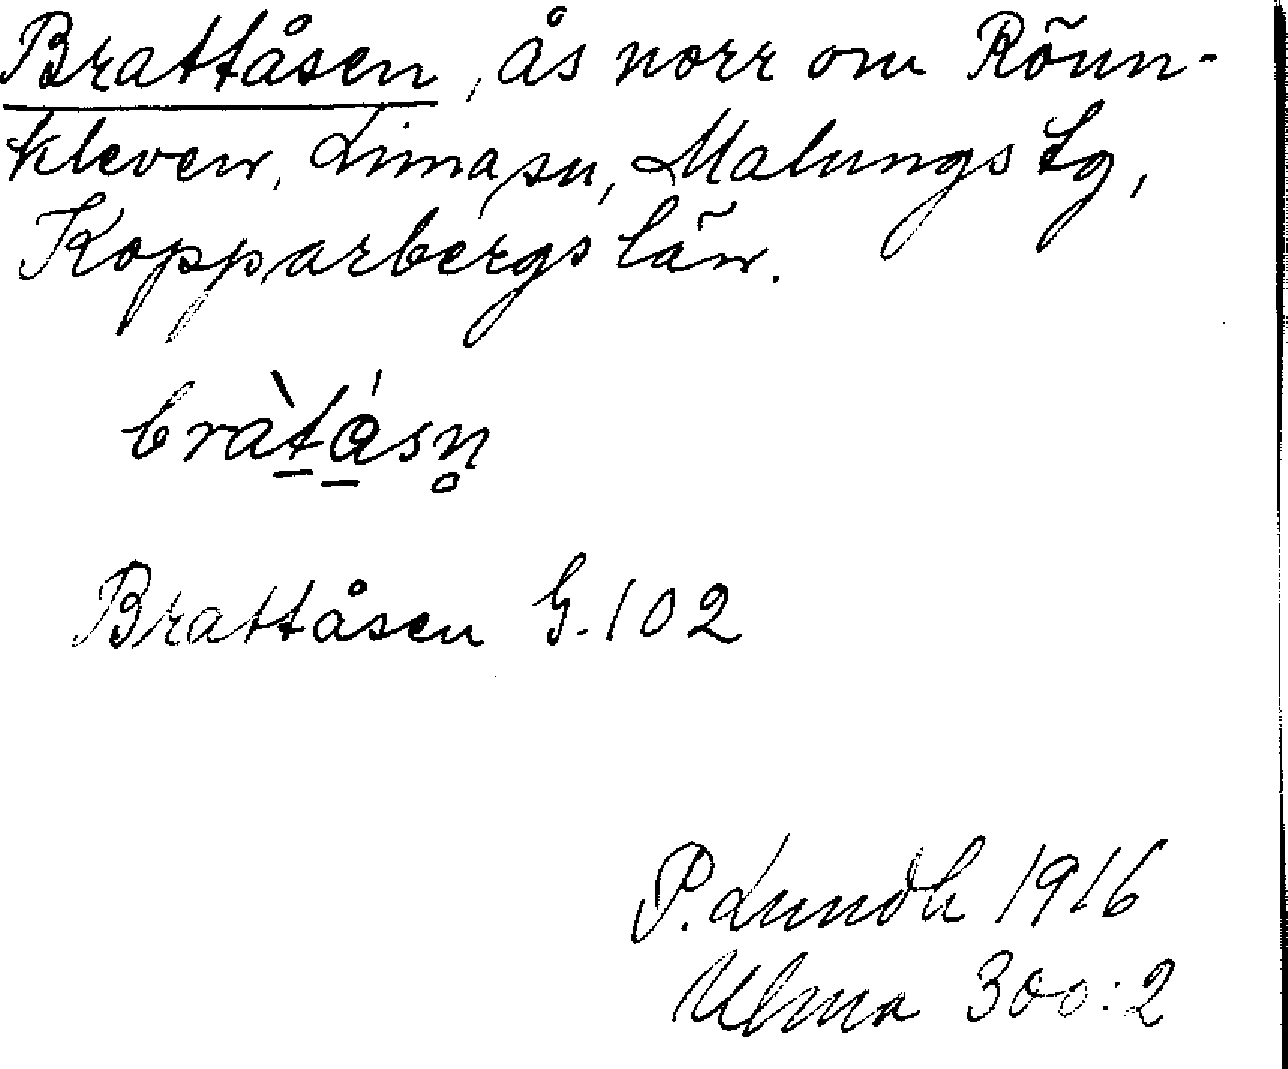 Brattåsen, ås norr om Rönn-
kleven, Lima sn, Malungs tg,
Kopparbergs län.
bràt̲á̲sn̥
Brattåsen G. 102
P. Lundh 1916
Ulma 300:2